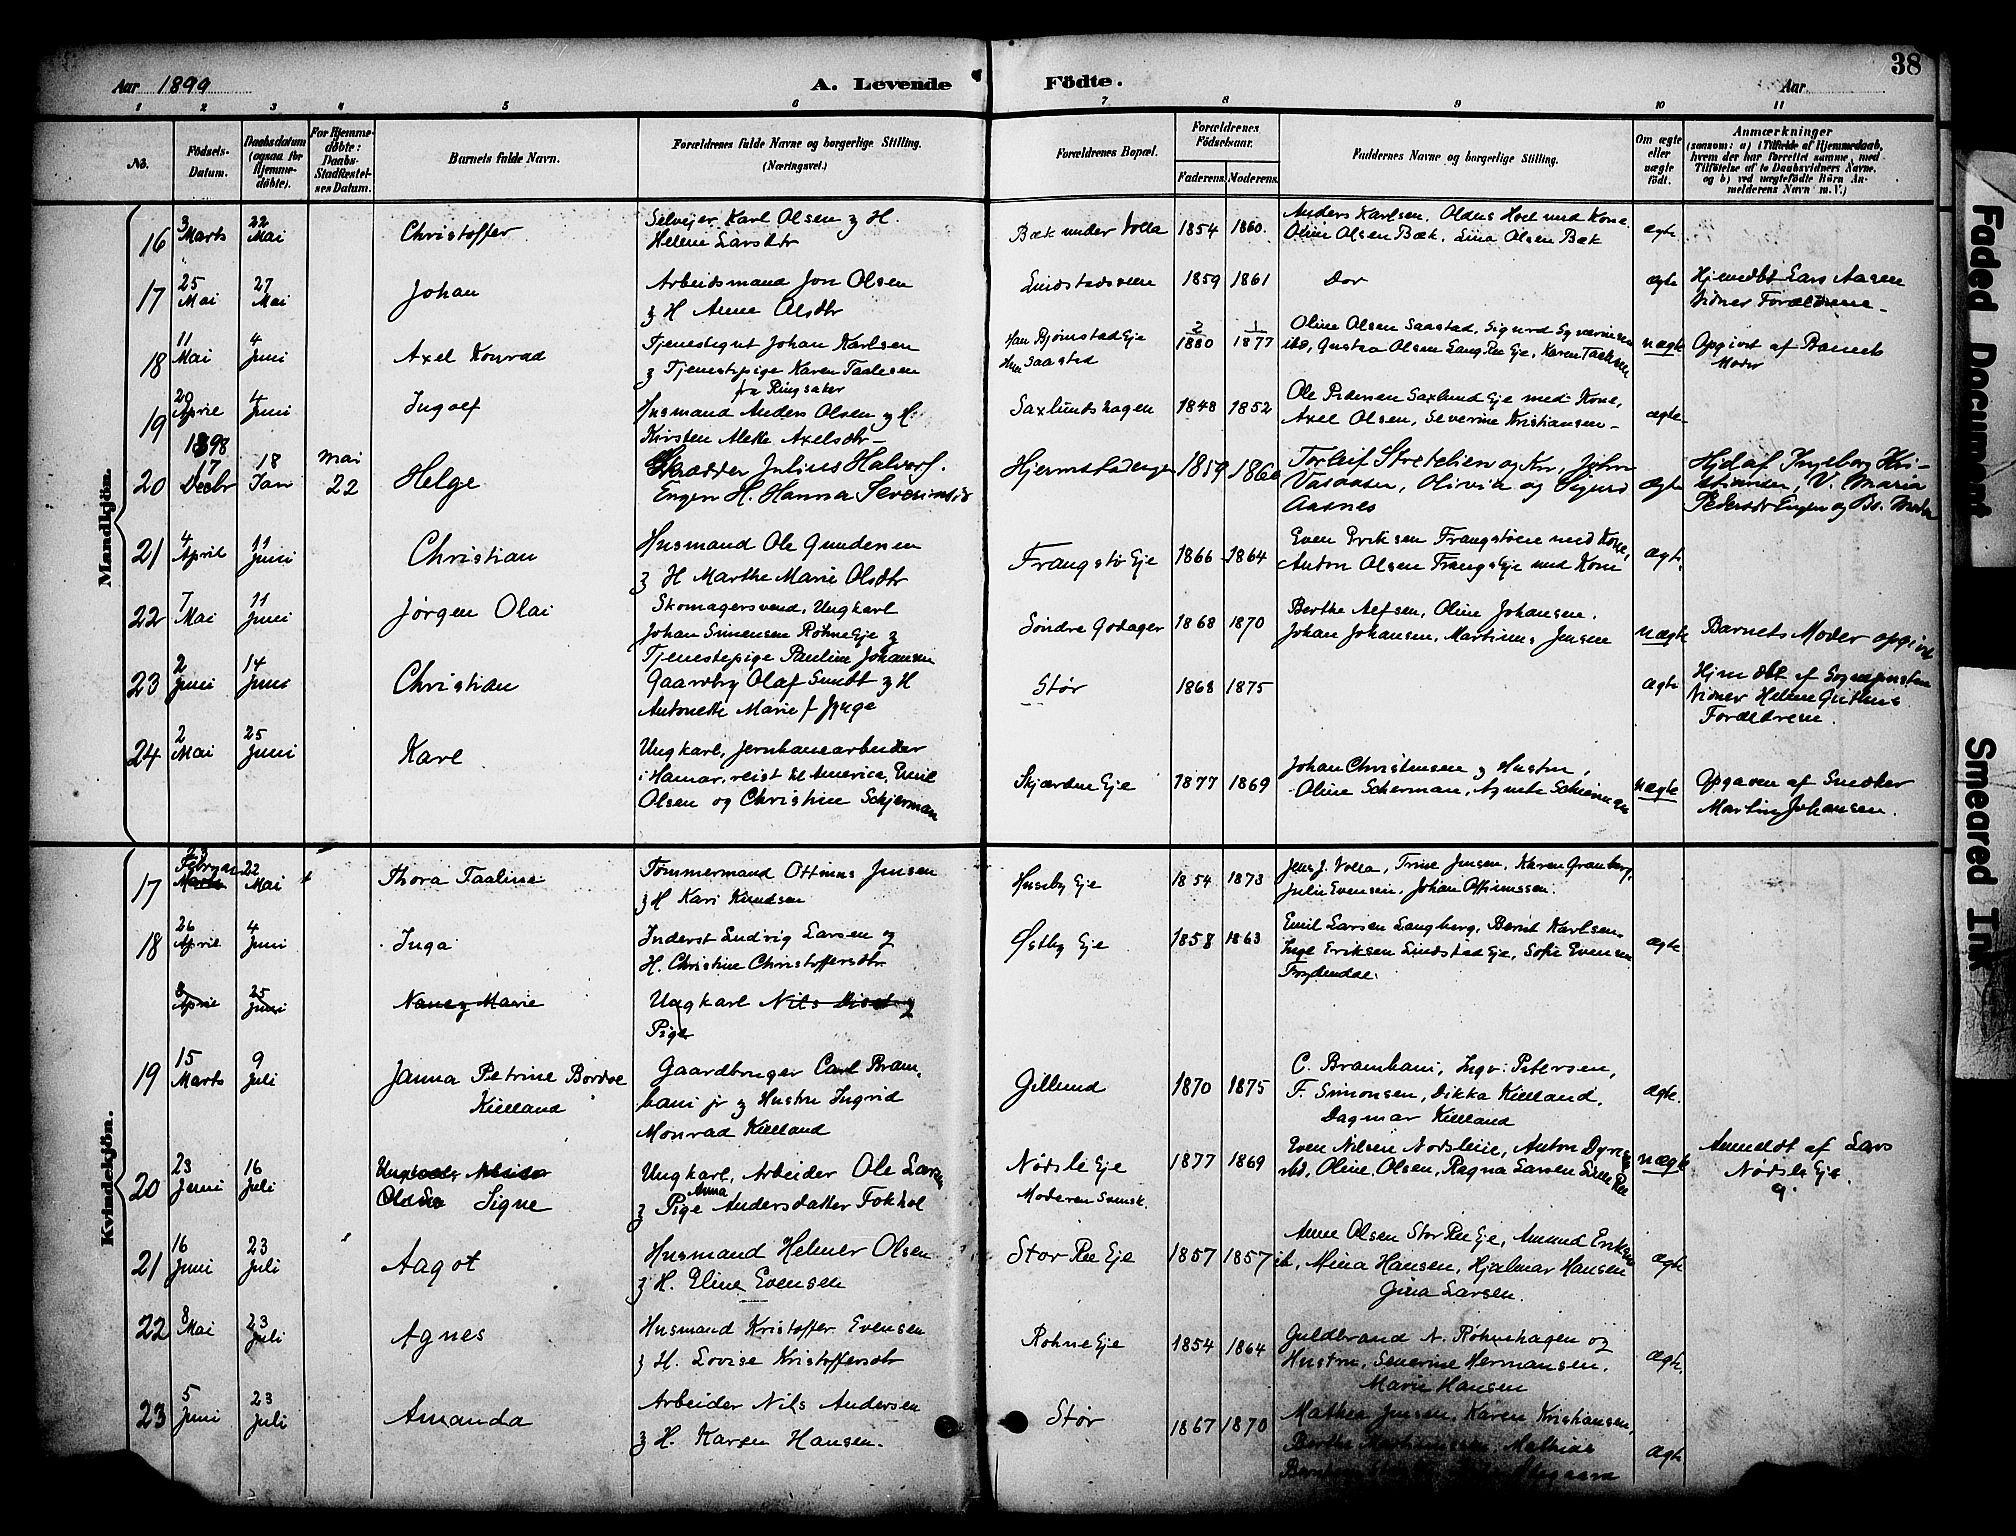 38
Aar 1899
A. Levende Födte.
Aar
1 2 3 4 5 6 7 8 9 10 11
No.
Födsels-Datum.
Daabsdatum (ogsaa for Hjemmedöbte).
For Hjemmedöbte: Daabs-Stadfæstelses Datum.
Barnets fulde Navn.
Forældrenes fulde Navne og borgerlige Stilling. (Næringsvei.)
Forældrenes Bopæl.
Forældrenes Födselsaar.
Faderens. Moderens.
Faddernes Navne og borgerlige Stilling.
Om ægte eller uægte födt.
Anmærkninger
(saasom: a) i Tilfælde af Hjemmedaab, hvem der har forrettet samme, med Tilföielse af to Daabsvidners Navne, og b) ved uægtefödte Börn Anmelderens Navn m. V.)
Mandkjön.
16 3 Marts 22 Mai Christoffer
Selveier Karl Olsen & H.
Helene Larsdtr
Bæk under Volla 1854 1860.
Anders Karlsen, Oldus Hoel med Kone
Oline Olsen Bæk, Lina Olsen Bæk
ægte
17 25 Mai 27 Mai Johan
Arbeidsmand Jon Olsen
& H Anne Olsdtr
Lindstadsveen 1859 1861 ægte
Hjemdbt Lars Aasen
Vidner Forældrene
18 11 Mai 4 Juni Axel Konrad
Tjenestegut Johan Karlsen
& Tjenestepige Karen Taalesen
fra Ringsaker
Han Bjørnstad Eje
Hun Saastad
2/1880 1/1877
Oline Olsen Saastad, Sigurd
ibd, Gustva Olsen Lang Ree Eje, Karen Taalesen
uægte
Opgivet af Barnets
Moder
19 20 April 4 Juni Ingolf
Husmand Anders Olsen & H.
Kirsten Alette Axelsdtr
Saxlundshagen 1848 1852
Ole Pedersen Saxlund Eje med Kone,
Axel Olsen, Severine Kristiansen
ægte
20 1898 17 Decbr 18 Jan Mai 22 Helge
Skrædder Julius Halvors.
Engen H. Hanna Severinsdr
Hjermstadengen 1859 1860
Torleif og Kone, John
Vasaasen, Olivia og Sigurd
Aasnes
ægte
Hjd af Ingeborg Kri-
stiansen, V. Maria
Pedersdr Engen og Bs. Moder
21 4 April 11 Juni Christian
Husmand Ole Gundersen
& H Marthe Marie Olsdtr
Frangstø Eje 1866 1864
Even Eriksen Frangstøeie med Kone,
Anton Olsen Frangs Eje med Kone
ægte.
22 7 Mai 11 Juni Jørgen Olai
Skomagersvend, Ungkarl
Johan Simensen Røhne Eje &
Tjenestepige Pauline Johansen
Søndre Godager 1868 1870
Berthe Alfsen, Oline Johansen.
Johan Johansen, Martinus Jensen
uægte
Barnets Moder opgivet
23 2 Juni 14 Juni Christian
Gaardbr Olaf Smidt & H
Antonette Marie f Jynge
Stør 1868 1875 ægte
Hjm dbt af Sognepresten
Vidner Helene
Forældrene.
24 2 Mai 25 Juni Karl
Ungkarl, Jernbanearbeider
i Hamar, reist til America, Emil
Olsen og Christine Schjerman
Skjærden Eje 1877 1869
Johan Christensen & Hustru,
Oline Scherman, Agnete
uægte
Opgaven af Snedker
Martin Johansen.
Kvindekjön.
17 23 Februar Marts 22 Mai Thora Taaline
Tømmermand Ottinus Jensen
& H Kari Knudsen
Huseby Eje 1854 1873
Jens J. Volla, Trine Jensen, Karen Granberg,
Julie Evensen, Johan Ottinussen.
18 26 April 4 Juni Inga
Inderst Ludvig Larsen og
H. Christine Christoffersdtr.
Østby Eje 1858 1863
Emil Larsen Langberg, Bernt Karlsen,
Inge Eriksen Lindstad Eje, Sofie Evensen
Frydendal.
ægte
8 April 25 Juni Nancy Marie
Ungkarl Nils
Pige
19 15 Marts 9 Juli Janna Petrine Bordoe
Kielland
Gaardbruger Carl Bram-
bani jr & Hustru Ingrid
Monrad Kielland
Gillund 1870 1875
C. Brambani, Ingv. Petersen,
F. Simonsen, Dikka Kielland,
Dagmar Kielland
ægte.
20 23 Juni 16 Juli Signe
Ungkarl, Arbeider Ole Larsen
& Pige Anna Andersdatter Fokhol
Nødsle Eje
Moderen Svensk.
1877 1869
Even Nilsen Nødsleeie, Anton
ibd, Oline Olsen, Ragna Larsen Lille Ree
uægte
Anmeldt af Lars
Nødsle Eje.
21 16 Juni 23 Juli Aagot
Husmand Helmer Olsen
& H. Eline Evensen
Stor Ree Eje 1857 1857
Anne Olsen Stor Ree Eje, Amund Eriksen
ib, Mina Hansen, Hjalmar Hansen
Gina Larsen.
ægte
22 8 Mai 23 Juli Agnes
Husmand Kristoffer Evensen
& H. Lovise Kristoffersdtr
Røhne Eje 1854 1864
Guldbrand N. Røhnehagen og
Hustru, Severine Hermansen,
Marie Hansen
ægte
23 5 Juni 23 Juli Amanda
Arbeider Nils Andersen
& H. Karen Hansen.
Stør 1867 1870
Mathea Jensen, Karen Kristiansen,
Mathias
ægte
Faded Document
Smeared Ink